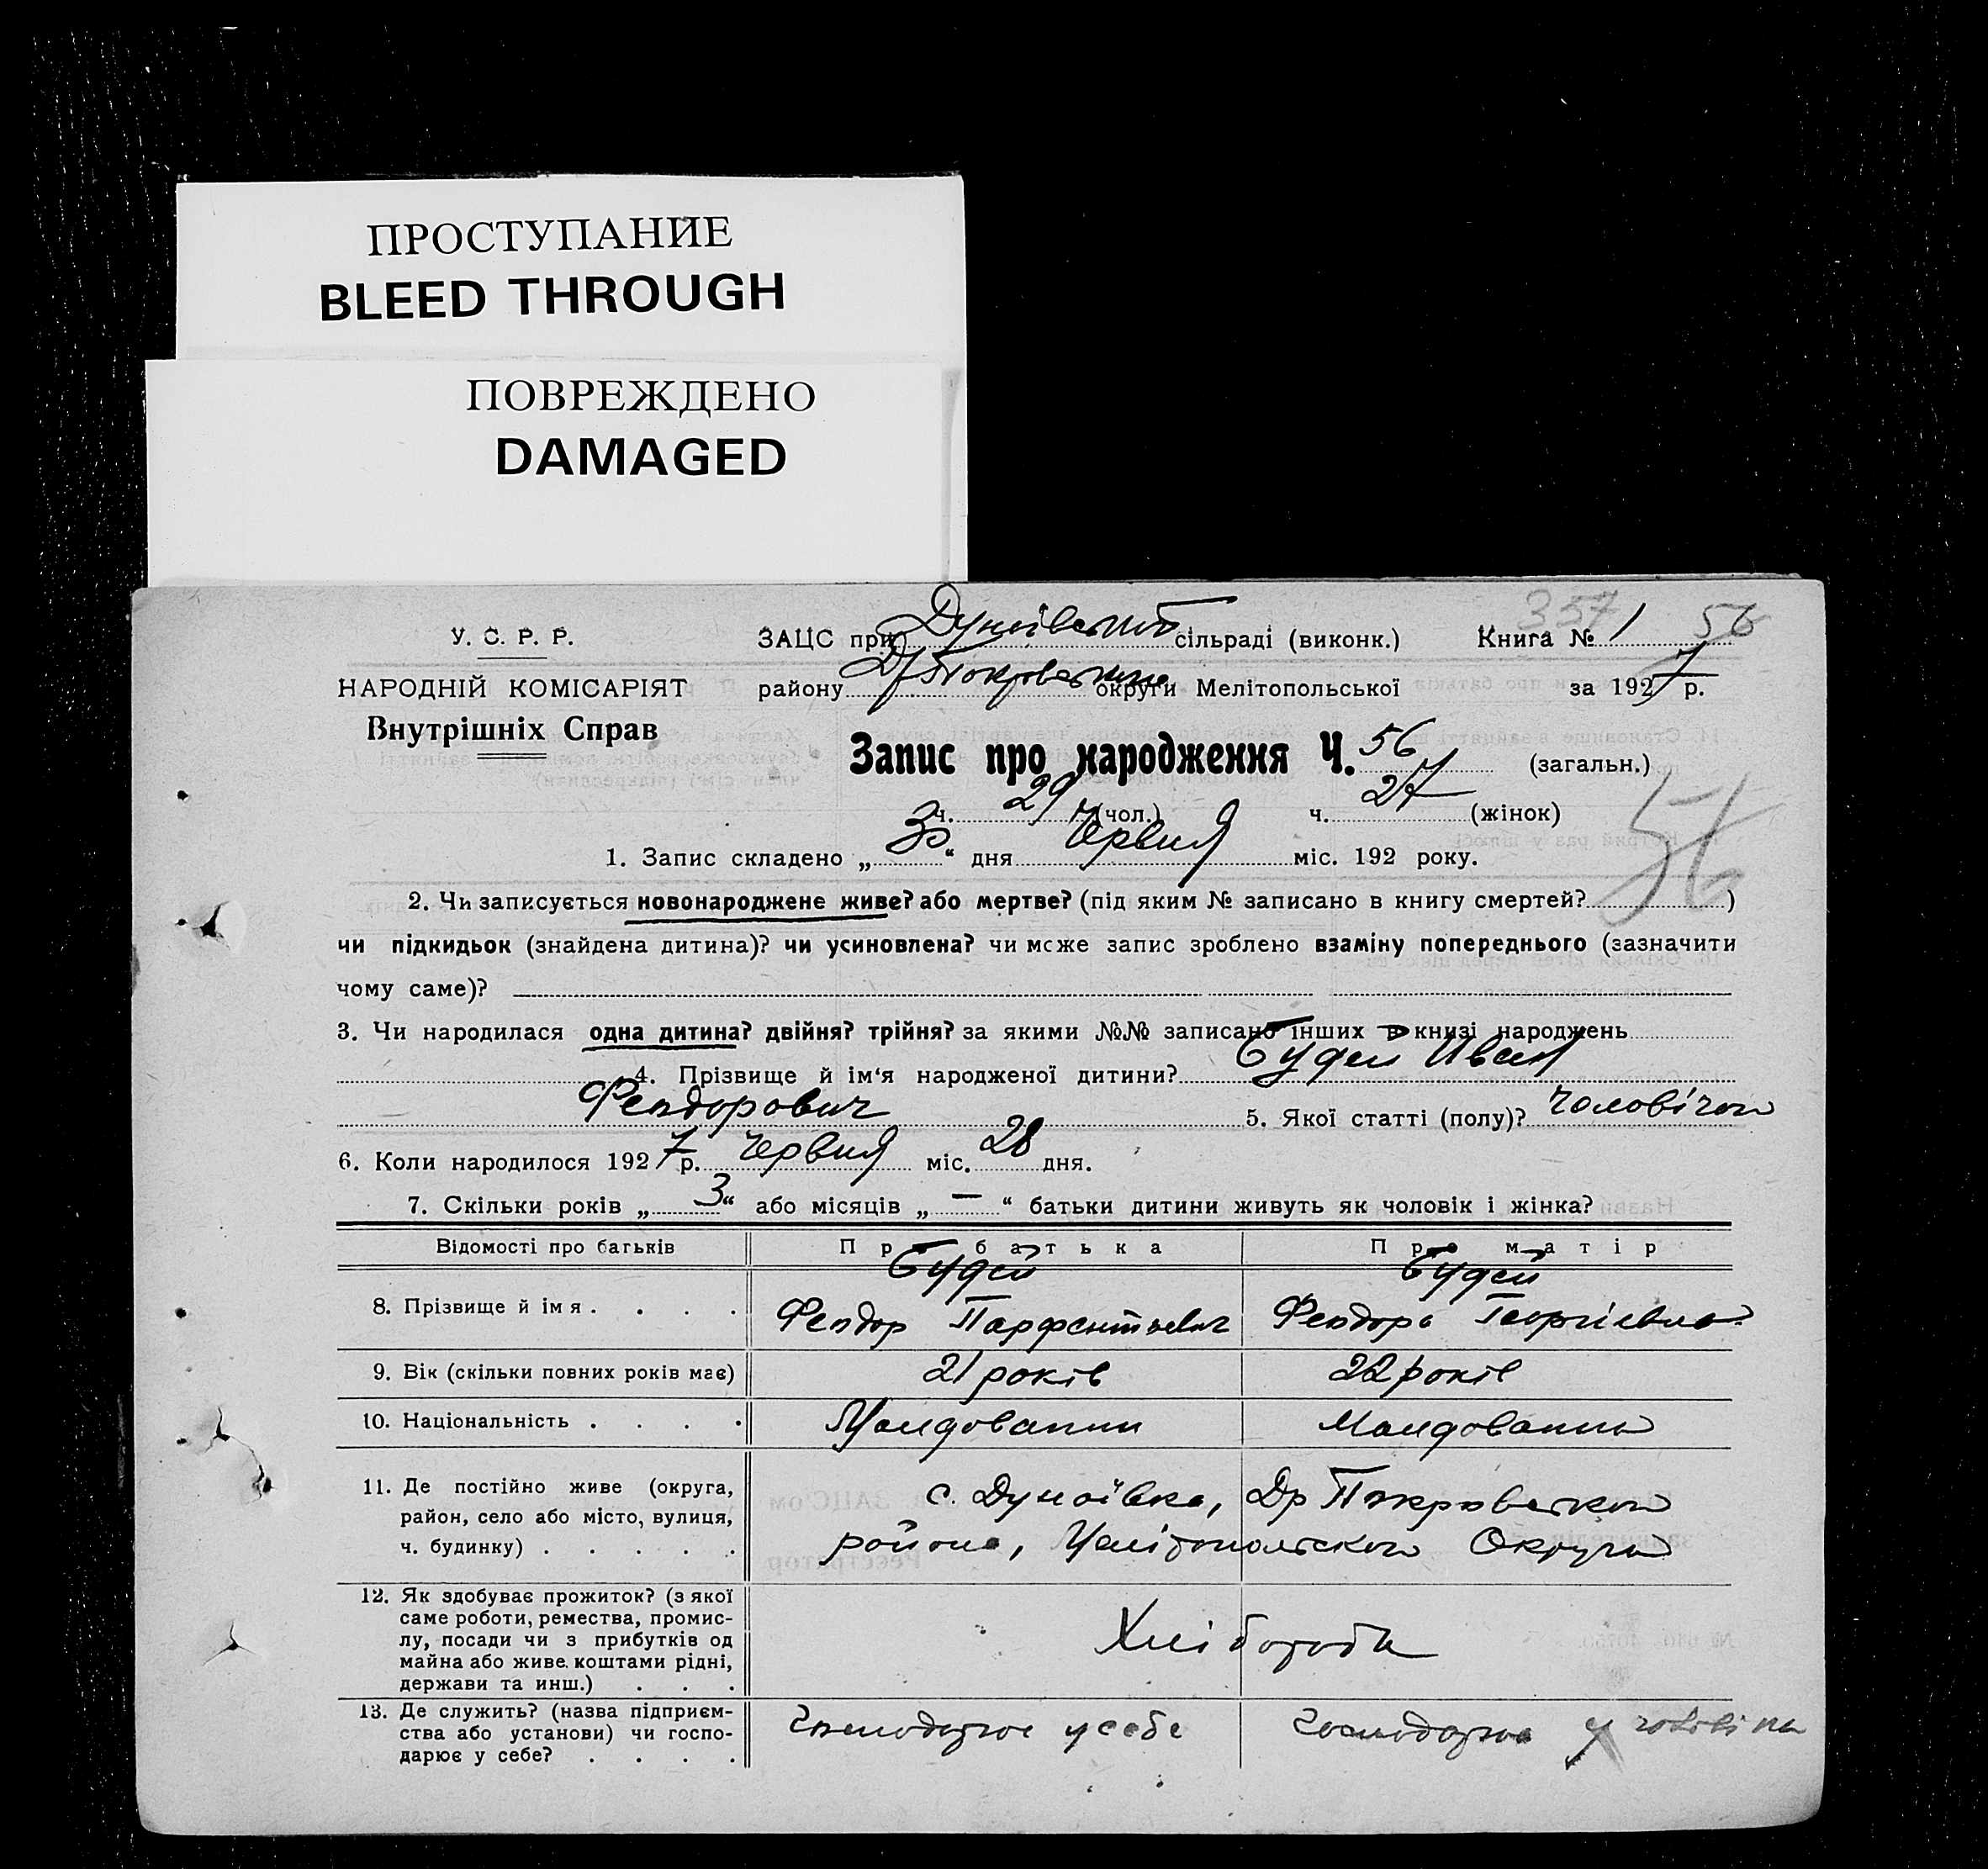 ПРОСТУПАНИЕ
BLEED THROUGH
ПОВРЕЖДЕНО
DAMAGED
357 56
У. С. Р. Р. ЗАЦС при Дунаївський сільраді (виконк.) Книга № 1
НАРОДНІЙ КОМІСАРІЯТ району Д/Покровський округи Мелітопольської за 1927 р.
Внутрішніх Справ
Запис про народження Ч. 56 (загальн.)
ч. 29 (чол.) ч. 27 (жінок)
56
1. Запис складено „30“ дня Червня міс. 192 року.
2. Чи записується новонароджене живе? або мертве? (під яким № записано в книгу смертей? )
чи підкидьок (знайдена дитина)? чи усиновлена? чи може запис зроблено взаміну попереднього (зазначити
чому саме)?
3. Чи народилася одна дитина? двійня? трійня? за якими №№ записано інших в книзі народжень
4. Прізвище й ім‘я народженої дитини? Будей Иван
Феодорович 5. Якої статті (полу)? Чоловічої
6. Коли народилося 1927 р. Червня міс. 28 дня.
7. Скільки років „3“ або місяців „—“ батьки дитини живуть як чоловік і жінка?
Відомості про батьків Про батька Про матір
Будей Будей
8. Прізвище й імя . . . . Феодор Парфентьевич Феодора Георгіевна
9. Вік (скільки повних років має) 21 років 22 років
10. Національність . . . . Молдованин Молдованка
11. Де постійно живе (округа, с. Дунаївка, Др Покровского
район, село або місто, вулиця,
ч. будинку) . . . . . района, Мелітопольского Округа
12. Як здобуває прожиток? (з якої
саме роботи, ремества, промис-
лу, посади чи з прибутків од Хлібороби
майна або живе коштами рідні,
держави та инш.) . . .
13. Де служить? (назва підприєм- Господарює у себе Господарює у чоловіка
ства або установи) чи госпо-
дарює у себе? . . . .